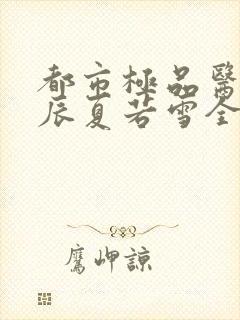 都市極品醫
辰夏若雪全
鷹岬諒